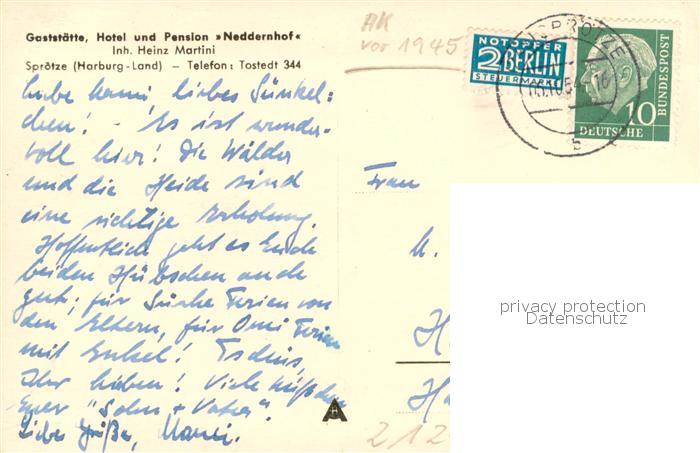 Gaststätte, Hotel und Pension »Neddernhof«
Inh. Heinz Martini
Sprötze (Harburg-Land) — Telefon: Tostedt 344
AK
vor 1945
NOTOPFER
2 BERLIN
STEUERMARKE
SPRÖTZE
10
DEUTSCHE
BUNDESPOST
b
liebes
chen! - Es ist wunder-
voll hier! Die Wälder
und die Heide sind
eine richtige Erholung.
Hoffentlich geht es Euch
beiden Hübschen auch
gut; für Ferien von
den Eltern, für Omi Ferien
mit Enkel! Tschüs,
Ihr Lieben! Viele
Euer "Sohn + Vater".
Liebe Grüße,
Frau
privacy protection
Datenschutz